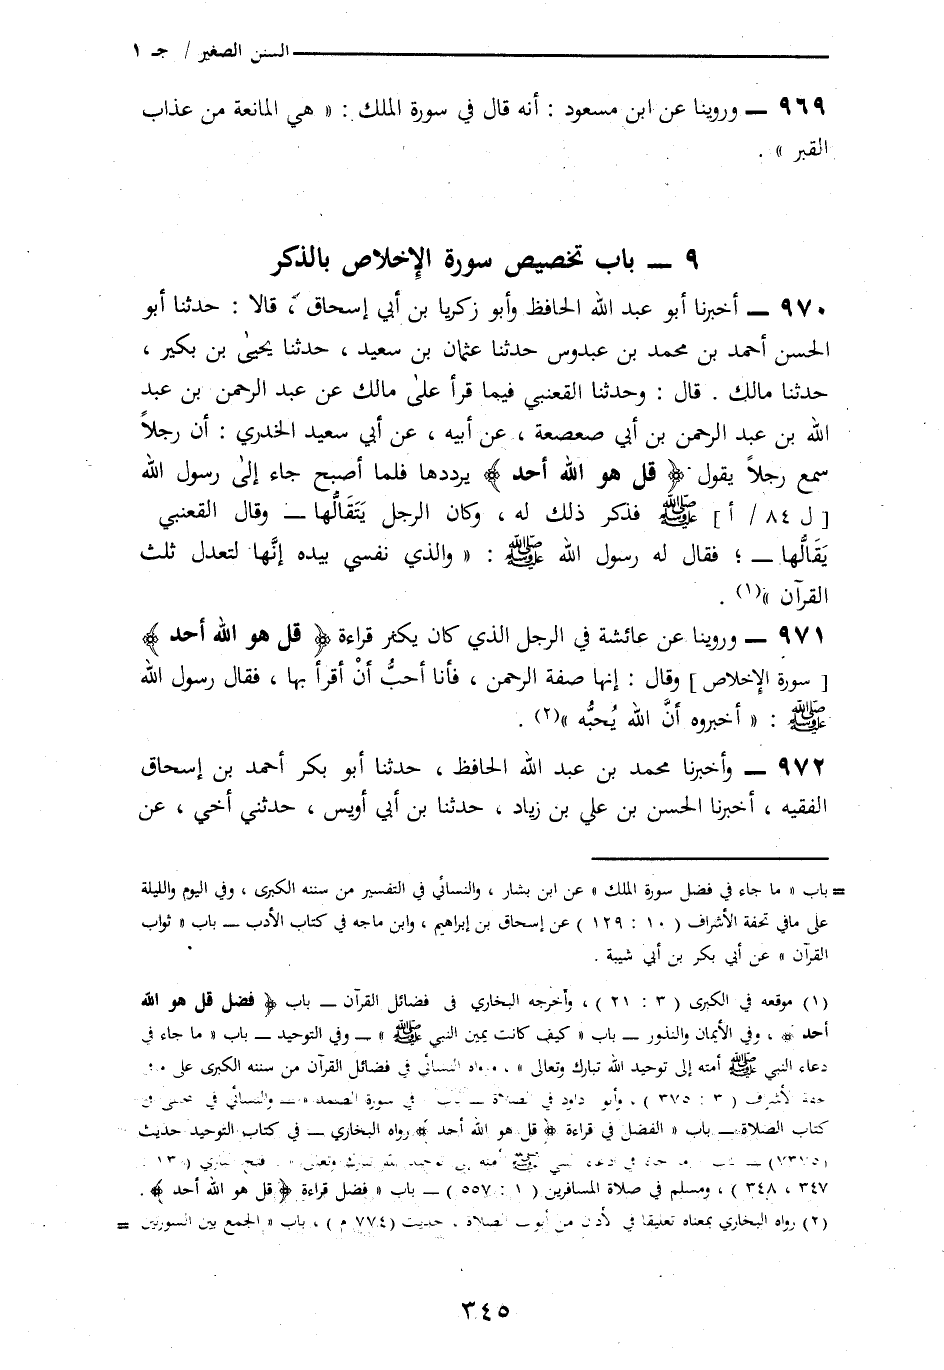 السنن الصغير / جـ ١
٩٦٩ ــ وروينا عن ابن مسعود : أنه قال في سورة الملك : « هي المانعة من عذاب
القبر » .
٩ ــ باب تخصيص سورة الإخلاص بالذكر
٩٧٠ ــ أخبرنا أبو عبد الله الحافظ وأبو زكريا بن أبي إسحاق ، قالا : حدثنا أبو
الحسن أحمد بن محمد بن عبدوس حدثنا عثمان بن سعيد ، حدثنا يحيىٰ بن بكير ،
حدثنا مالك . قال : وحدثنا القعنبي فيما قرأ علىٰ مالك عن عبد الرحمن بن عبد
الله بن عبد الرحمن بن أبي صعصعة ، عن أبيه ، عن أبي سعيد الخدري : أن رجلاً
سمع رجلاً يقول ﴿ قل هو الله أحد ﴾ يرددها فلما أصبح جاء إلىٰ رسول الله
[ ل ٨٤ / أ ] ﷺ فذكر ذلك له ، وكان الرجل يَتَقَالُّها ــ وقال القعنبي
يَقَالُّها ــ ؛ فقال له رسول الله ﷺ : « والذي نفسي بيده إنَّها لتعدل ثلث
القرآن »(١) .
٩٧١ ــ وروينا عن عائشة في الرجل الذي كان يكثر قراءة ﴿ قل هو الله أحد ﴾
[ سورة الإخلاص ] وقال : إنها صفة الرحمن ، فأنا أحبُّ أنْ أقرأ بها ، فقال رسول الله
ﷺ : « أخبروه أنَّ الله يُحبُّه »(٢) .
٩٧٢ ــ وأخبرنا محمد بن عبد الله الحافظ ، حدثنا أبو بكر أحمد بن إسحاق
الفقيه ، أخبرنا الحسن بن علي بن زياد ، حدثنا بن أبي أويس ، حدثني أخي ، عن
= باب « ما جاء في فضل سورة الملك » عن ابن بشار ، والنسائي في التفسير من سننه الكبرى ، وفي اليوم والليلة
على مافي تحفة الأشراف ( ١٠ : ١٢٩ ) عن إسحاق بن إبراهيم ، وابن ماجه في كتاب الأدب ــ باب « ثواب
القرآن » عن أبي بكر بن أبي شيبة .
(١) موقعه في الكبرى ( ٣ : ٢١ ) ، وأخرجه البخاري فى فضائل القرآن ــ باب ﴿ فضل قل هو الله
أحد ﴾ ، وفي الأيمان والنذور ــ باب « كيف كانت يمين النبي ﷺ » ــ وفي التوحيد ــ باب « ما جاء في
دعاء النبي ﷺ أمته إلى توحيد الله تبارك وتعالى » ، ورواه النسائي في فضائل القرآن من سننه الكبرى على
( ٣ : ٣٧٥ ) ، وأبو داود في الصلاة ــ باب في سورة الصمد » ــ والنسائي في
كتاب الصلاة ــ باب « الفضل في قراءة ﴿ قل هو الله أحد ﴾ رواه البخاري ــ في كتاب التوحيد حديث
(٧٣٧٥) ــ باب ما جاء في دعاء النبي ﷺ أمته إلى توحيد الله تبارك وتعالى فتح الباري ( ١٣ :
٣٤٧ ، ٣٤٨ ) ، ومسلم في صلاة المسافرين ( ١ : ٥٥٧ ) ــ باب « فضل قراءة ﴿ قل هو الله أحد ﴾ .
(٢) رواه البخاري بمعناه تعليقا في لأذن من أبوب الصلاة ، حديث (٧٧٤ م ) ، باب « الجمع بين السورتين =
٣٤٥